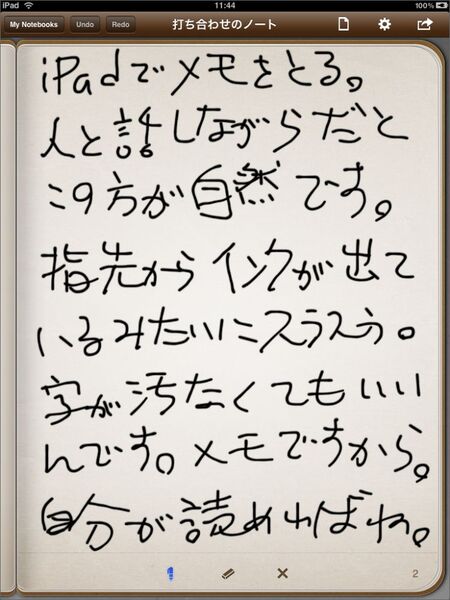 iPad 11:44 100%
My Notebooks Undo Redo 打ち合わせのノート
iPadでメモをとる。
人と話しながらだと
この方が自然です。
指先からインクが出て
いるみたいにスラスラ。
字が汚たなくてもいい
んです。メモですから。
自分が読めればね。
2